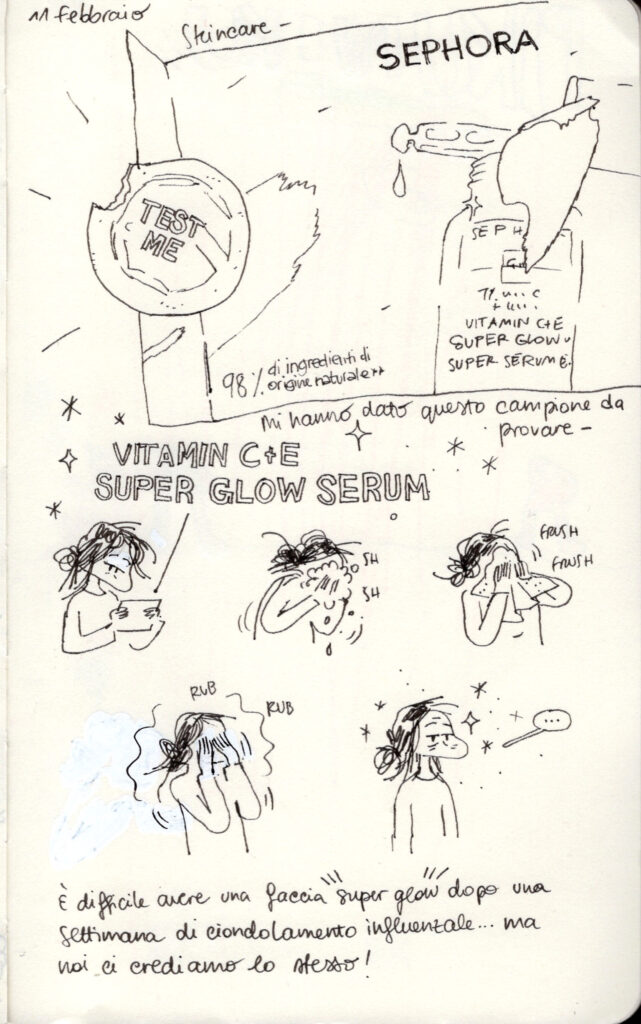 11 febbraio
Skincare -
SEPHORA
TEST
ME
SEPH
VITAMIN C+E
SUPER GLOW
SUPER SERUM
98% di ingredienti di
origine naturale**
mi hanno dato questo campione da
provare -
VITAMIN C+E
SUPER GLOW SERUM
SH
SH
FRUSH
FRUSH
RUB
RUB
...
È difficile avere una faccia super glow dopo una
settimana di ciondolamento influenzale... ma
noi ci crediamo lo stesso!